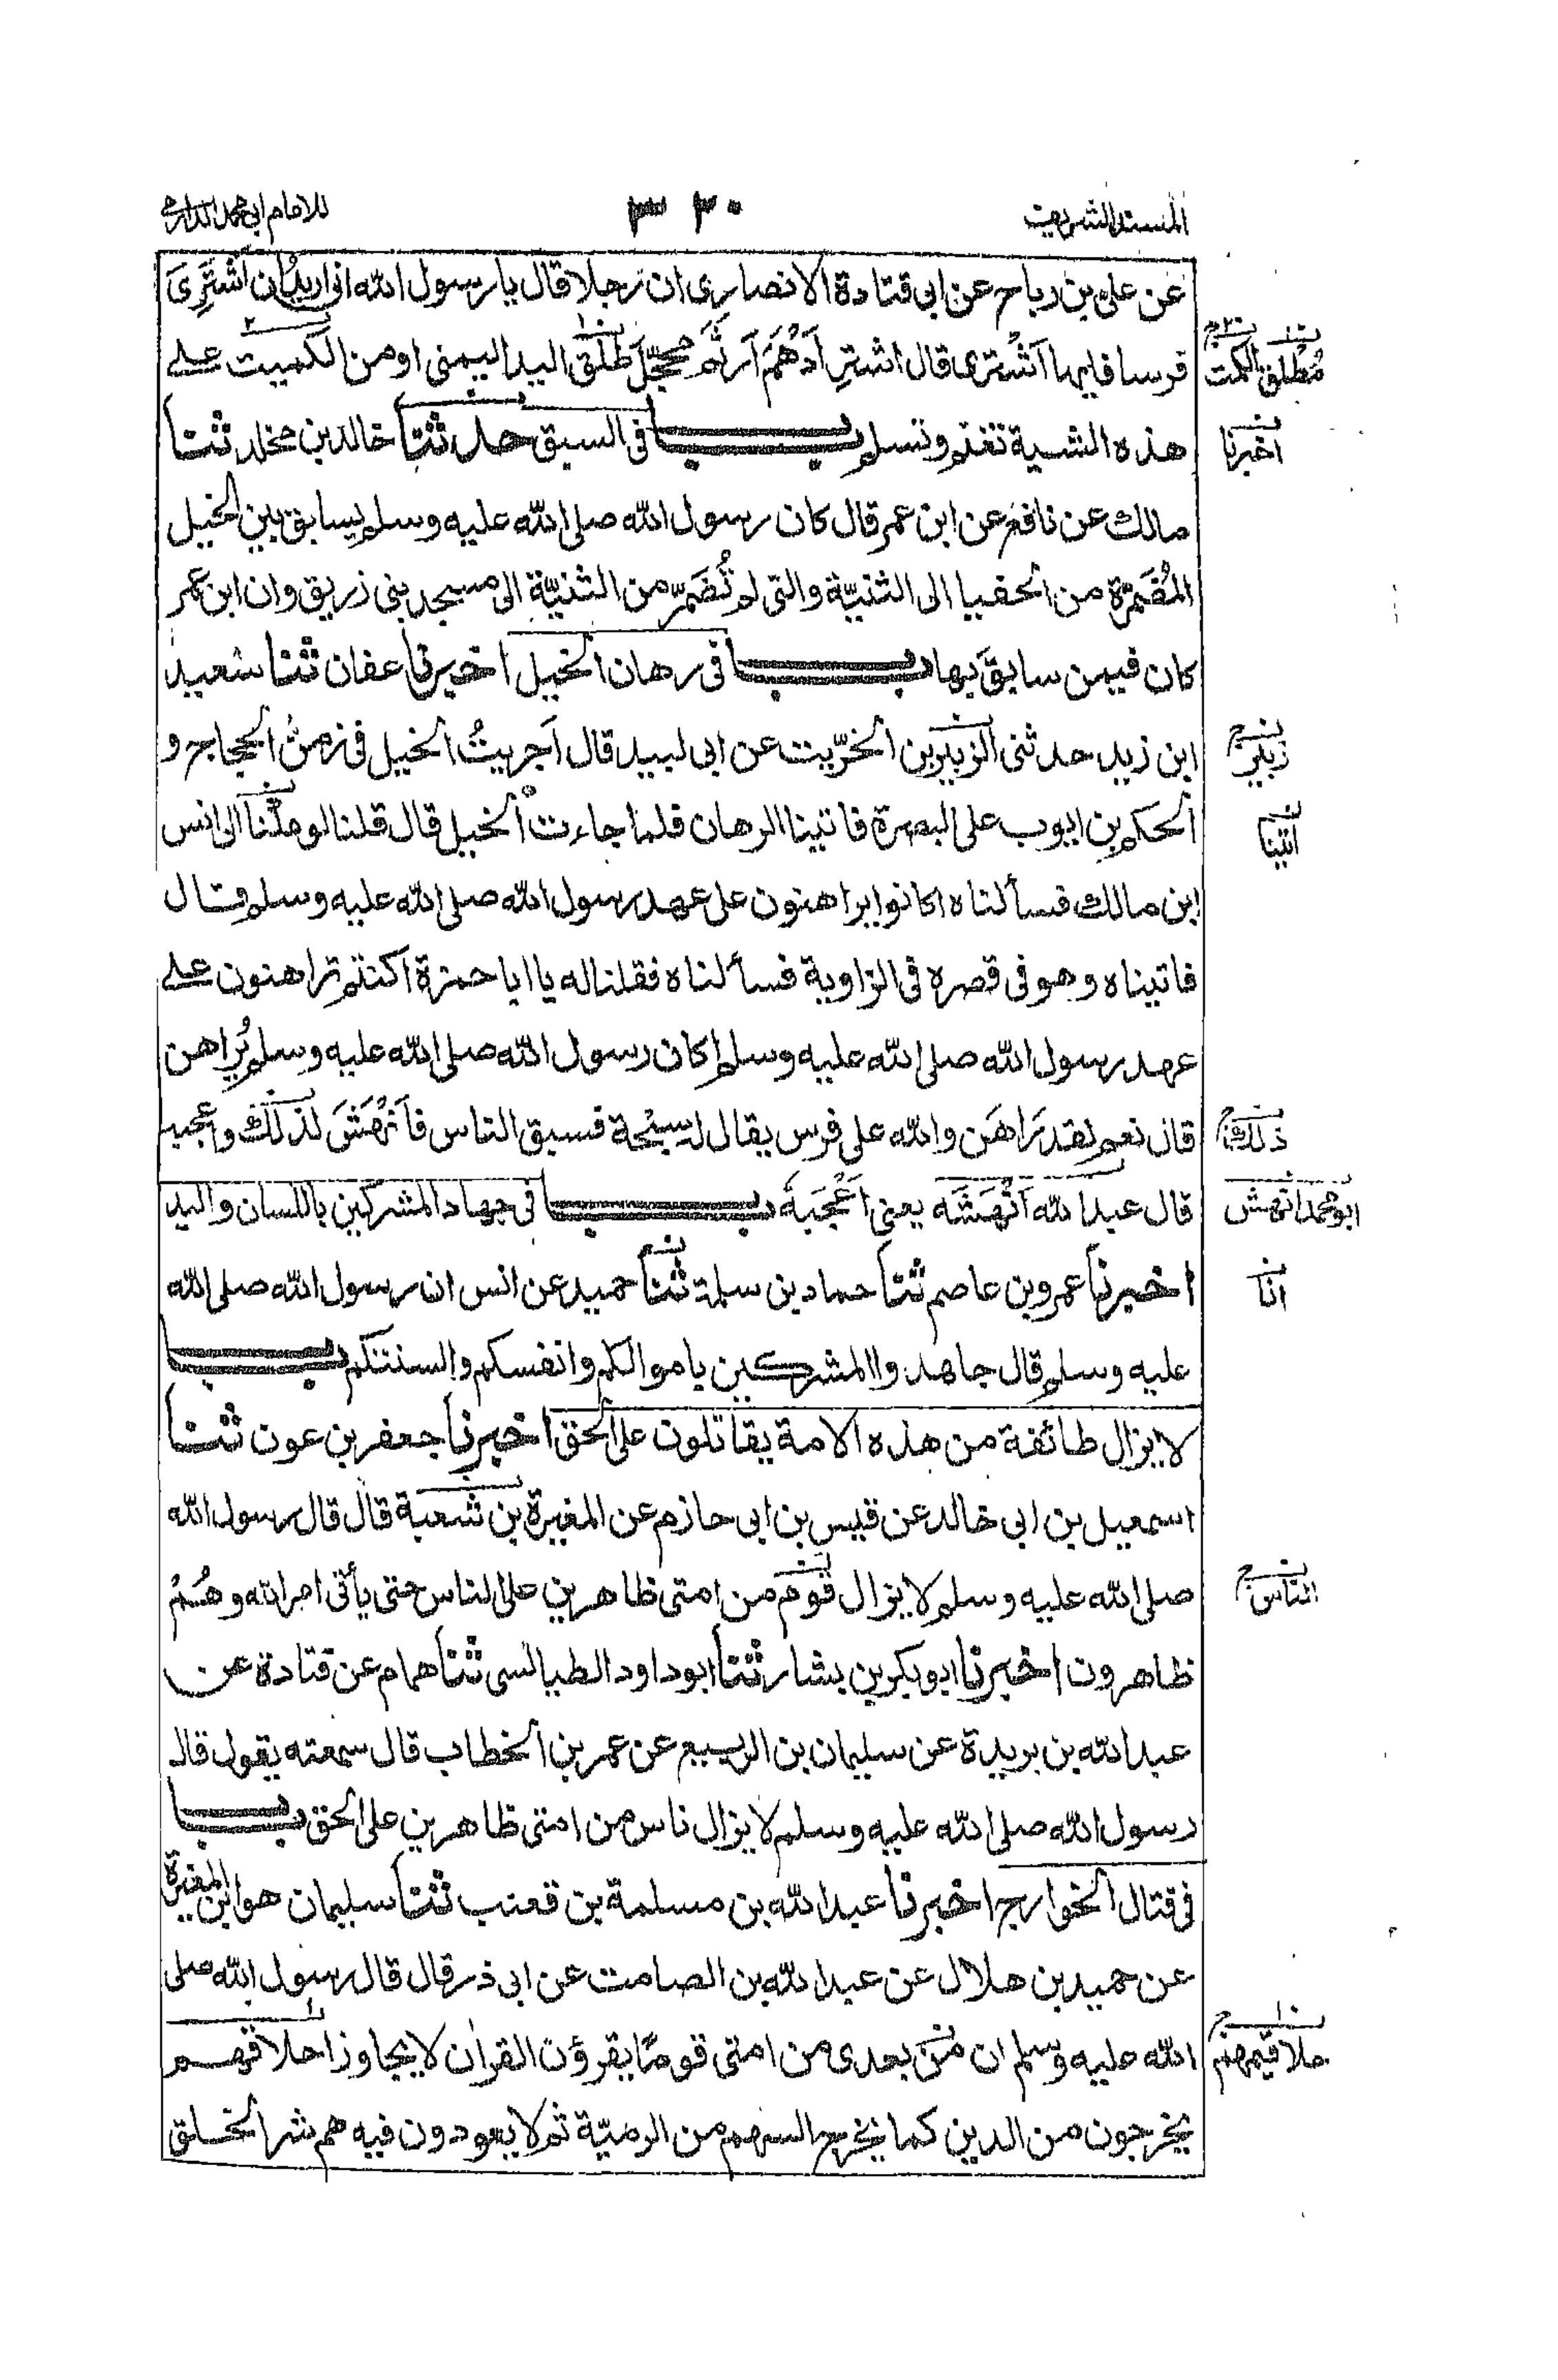 المسند الشريف
٣٣٠
للامام ابي محمد الدارمي
عن علي بن رباح عن ابي قتادة الانصاري ان رجلا قال يا رسول الله اني اريد ان اَشْتَرِيَ
فرسا فايها اَشْتري قال اشترِ اَدْهَمَ اَرْثَمَ محجّل طَلْق اليد اليمنى او من الكميت على
مُطْلق
الكمت
هذه الشية تغنم وتسلم باب في السبق حدثنا خالد بن مخلد ثنا
اخبرنا
مالك عن نافع عن ابن عمر قال كان رسول الله صلى الله عليه وسلم يسابق بين الخيل
المُضَمّرة من الحفيا الى الثنيّة والتي لم تُضَمّر من الثنيّة الى مسجد بني زريق وان ابن عمر
كان فيمن سابقَ بها باب في رهان الخيل اخبرنا عفان ثنا سعيد
ابن زيد حدثني الزبير بن الخرّيت عن ابي لبيد قال اَجريتُ الخيل في زمن الحجاج و
زبير
الحكم بن ايوب على البصرة فاتينا الرهان فلما جاءت الخيل قال قلنا لو ملنا الى انس
اتينا
ابن مالك فسألناه اكانوا يراهنون على عهد رسول الله صلى الله عليه وسلم قال
فاتيناه وهو في قصره في الزاوية فسألناه فقلنا له يا ابا حمزة اكنتم تراهنون على
عهد رسول الله صلى الله عليه وسلم اكان رسول الله صلى الله عليه وسلم يُراهن
قال نعم لقد رَاهَن والله على فرس يقال له سبْحة فسبق الناس فاَنْهَشَ لذلك واعجبه
ذلك
قال عبد الله اَنْهَشَه يعني اَعْجَبَهُ باب في جهاد المشركين باللسان واليد
ابو محمد انهش
اخبرنا عمرو بن عاصم ثنا حماد بن سلمة ثنا حميد عن انس ان رسول الله صلى الله
انا
عليه وسلم قال جاهدوا المشركين باموالكم وانفسكم والسنتكم باب
لا يزال طائفة من هذه الامة يقاتلون على الحق اخبرنا جعفر بن عون ثنا
اسمعيل بن ابي خالد عن قيس بن ابي حازم عن المغيرة بن شعبة قال قال رسول الله
صلى الله عليه وسلم لا يزال قوم من امتي ظاهرين على الناس حتى يأتي امر الله وهُمْ
الناس
ظاهرون اخبرنا ابو بكر بن بشار ثنا ابو داود الطيالسي ثنا همام عن قتادة عن
عبد الله بن بريدة عن سليمان بن الربيع عن عمر بن الخطاب قال سمعته يقول قال
رسول الله صلى الله عليه وسلم لا يزال ناس من امتي ظاهرين على الحق باب
في قتال الخوارج اخبرنا عبد الله بن مسلمة بن قعنب ثنا سليمان هو ابن المغيرة
عن حميد بن هلال عن عبد الله بن الصامت عن ابي ذر قال قال رسول الله صلى
الله عليه وسلم ان من بعدي من امتي قومًا يقرؤن القران لا يجاوز احلاقهم
حلاقيمهم
يخرجون من الدين كما يخرج السهم من الرميّة ثم لا يعودون فيه هم شر الخلق